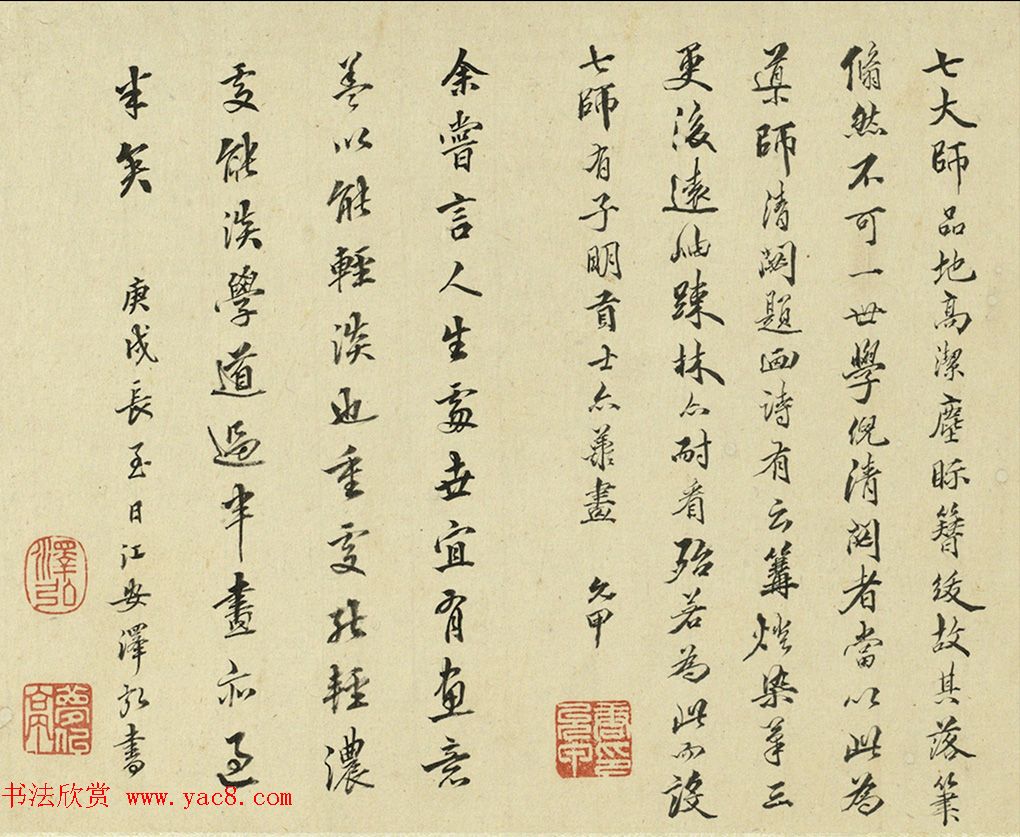 七大師品地高潔塵眎簪紱故其落筆
翛然不可一世學倪清閟者當以此為
導師清閟題画詩有云篝燈染筆三
更後遠岫踈林亦耐看殆若為此而設
七師有子明首士亦兼畫 允甲
余嘗言人生處世宜有畫意
蓋以能輕淡也重處能輕濃
處能淡學道過半畫亦過
半矣 庚戌長至日江安澤弘書
澤弘
書法欣赏 www.yac8.com